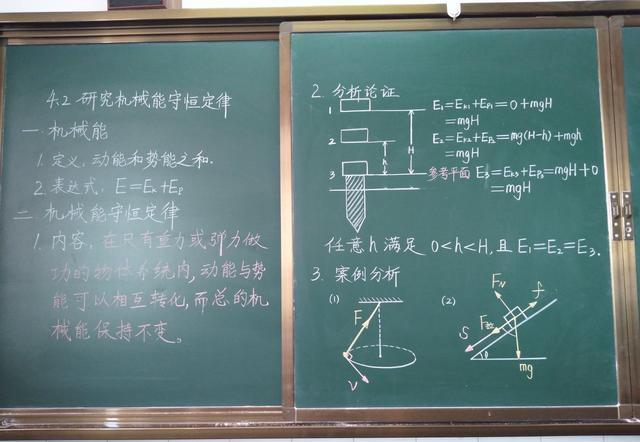 4.2 研究机械能守恒定律
一 机械能
1. 定义：动能和势能之和.
2. 表达式：E=Eₖ+Eₚ
二 机械能守恒定律
1. 内容：在只有重力或弹力做
功的物体系统内，动能与势
能可以相互转化，而总的机
械能保持不变。
2. 分析论证
1
2
3
h
H
参考平面
E₁=Eₖ₁+Eₚ₁=0+mgH
=mgH
E₂=Eₖ₂+Eₚ₂=mg(H-h)+mgh
=mgH
E₃=Eₖ₃+Eₚ₃=mgH+0
=mgH
任意h满足 0<h<H，且E₁=E₂=E₃.
3. 案例分析
(1)
F
v
(2)
Fₙ
f
F拉
S
θ
mg